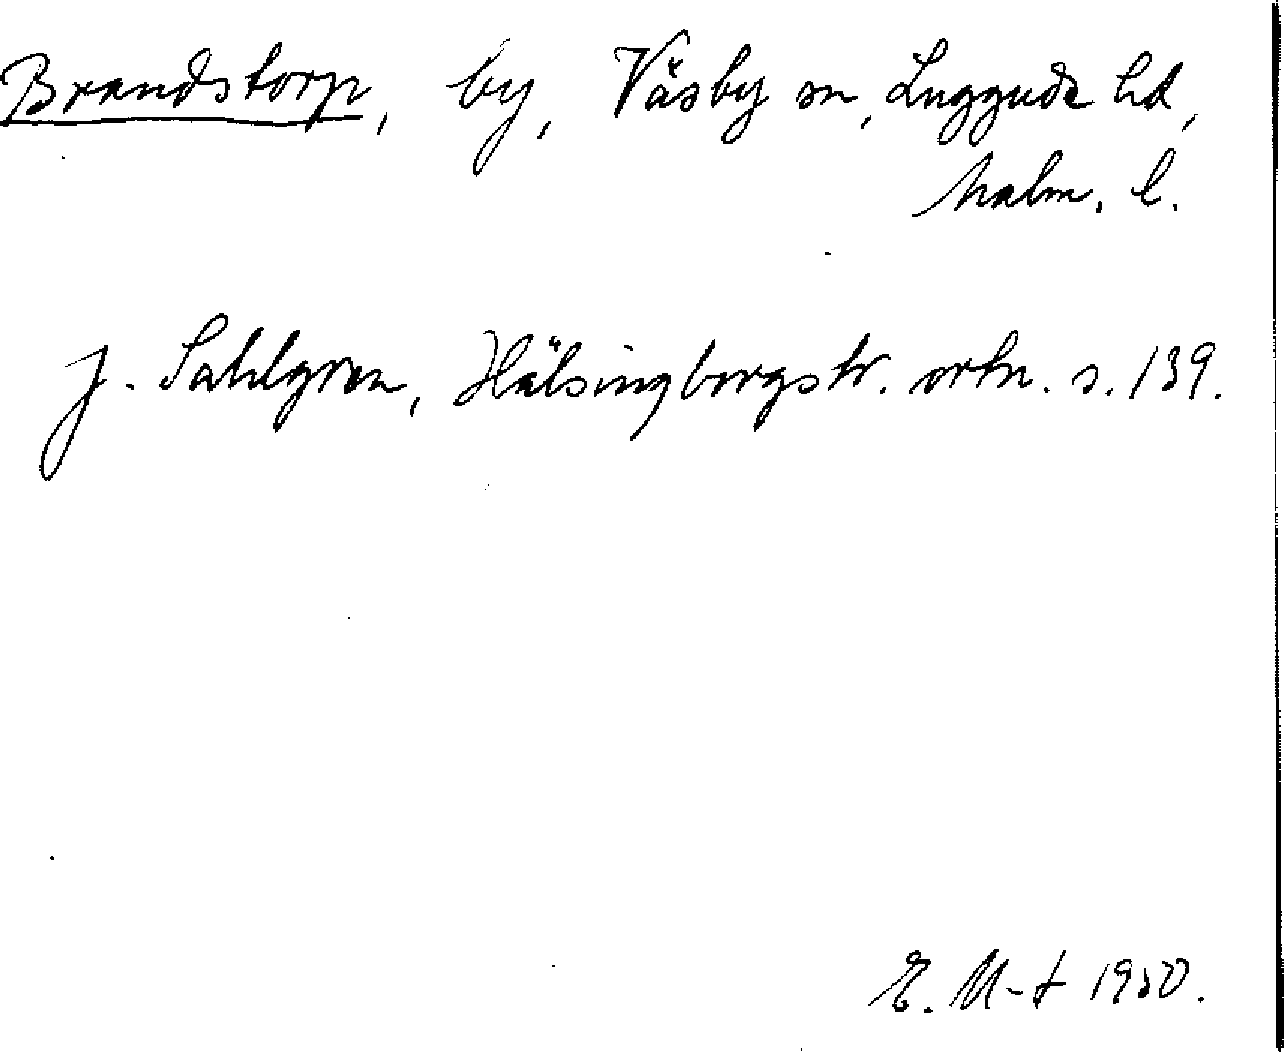 Brandstorp, by, Väsby sn, Luggude hd,
Malm. l.
J. Sahlgren, Hälsingborgstr. ortn. s. 139.
E. M-t 1950.